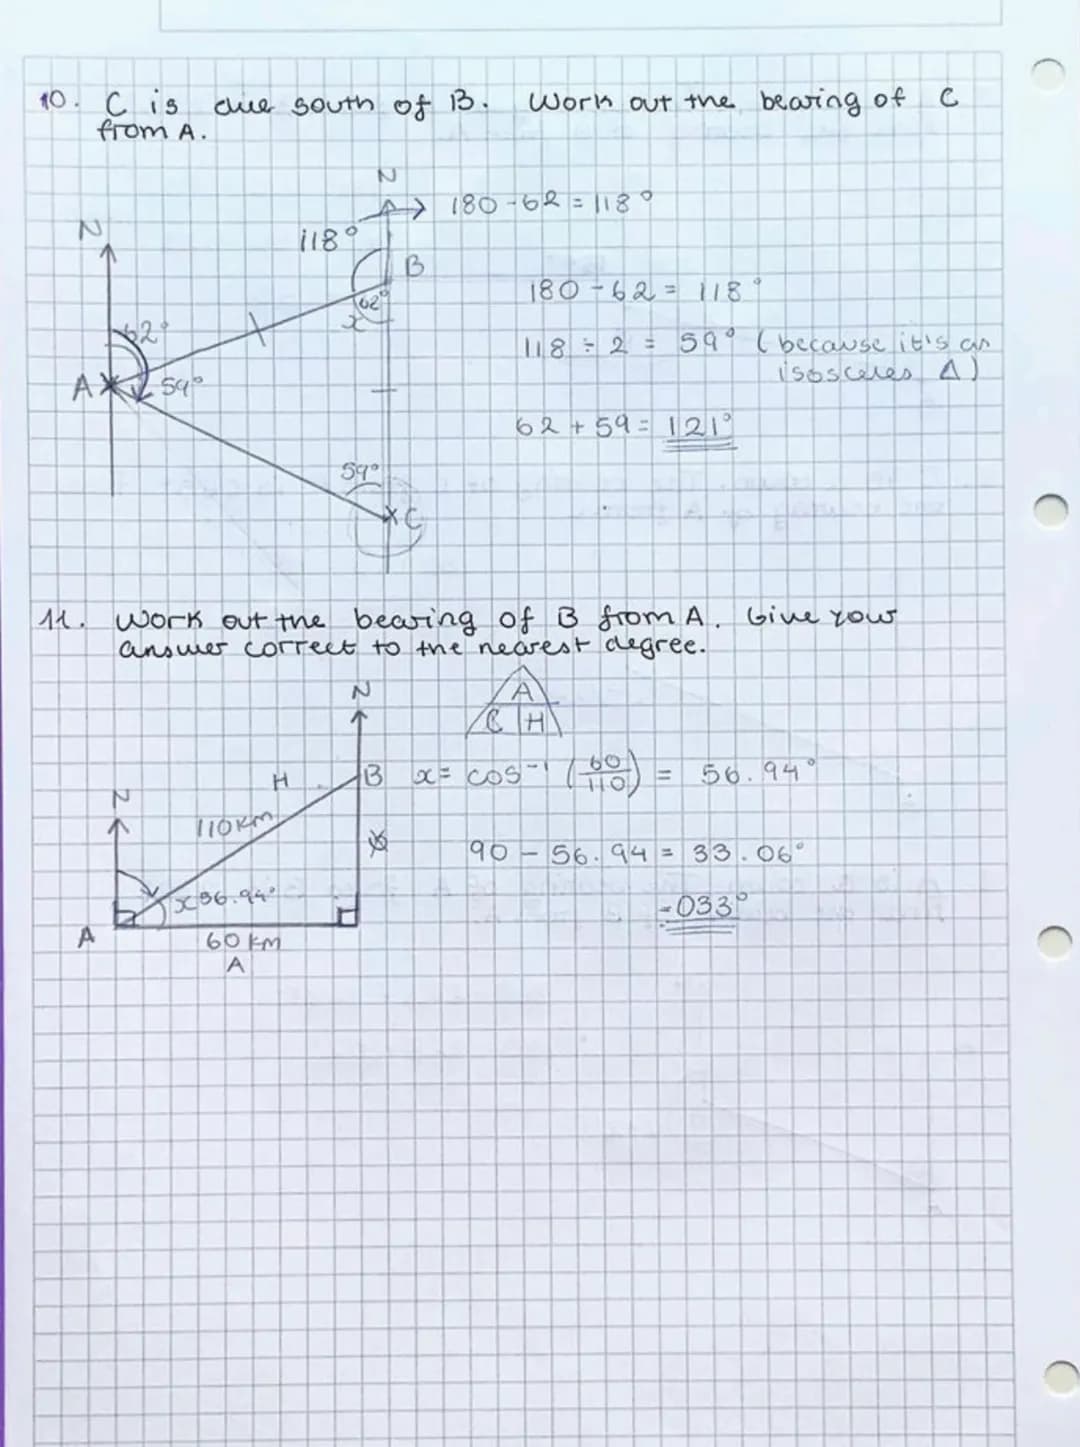 10. C is due south of B. Work out the bearing of C
from A.
N
180 - 62 = 118°
N
118°
B
180 - 62 = 118°
62°
x
62°
118 ÷ 2 = 59° (because it's an
isosceles Δ)
A
59°
62 + 59 = 121°
59°
C
11. Work out the bearing of B from A. Give your
answer correct to the nearest degree.
N
A
C H
H
B
x = cos⁻¹ (60/110) = 56.94°
N
110km
90 - 56.94 = 33.06°
x 56.94°
= 033°
A
60 km
A